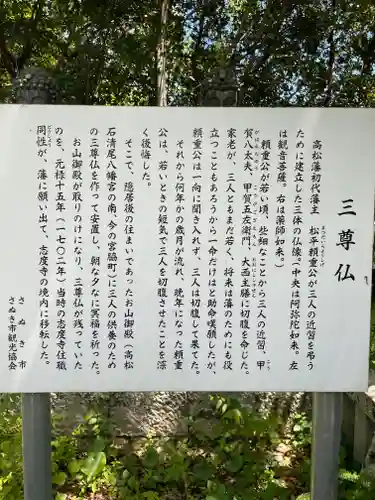 三尊仏
高松藩初代藩主　松平頼重公が三人の近習を弔う
まつだいらよりしげ
ために建立した三体の仏像。中央は阿弥陀如来。左
は観音菩薩。右は薬師如来。
頼重公が若い頃、些細なことから三人の近習、甲
賀八太夫、甲賀五左衛門、大西主膳に切腹を命じた。
家老が、三人ともまだ若く、将来は藩のためにも役
立つこともあろうから一命だけはと助命嘆願したが、
頼重公は一向に聞き入れず、三人は切腹して果てた。
それから何年かの歳月が流れ、晩年になった頼重
公は、若いときの短気で三人を切腹させたことを深
く後悔した。
そこで、隠居後の住まいであったお山御殿（高松
石清尾八幡宮の南、今の宮脇町）に三人の供養のため
の三尊仏を作って安置し、朝な夕なに冥福を祈った。
お山御殿が取りのけになり、三尊仏が残っていた
のを、元禄十五年（一七〇二年）当時の志度寺住職
同性が、藩に願い出て、志度寺の境内に移転した。
さぬき市
さぬき市観光協会